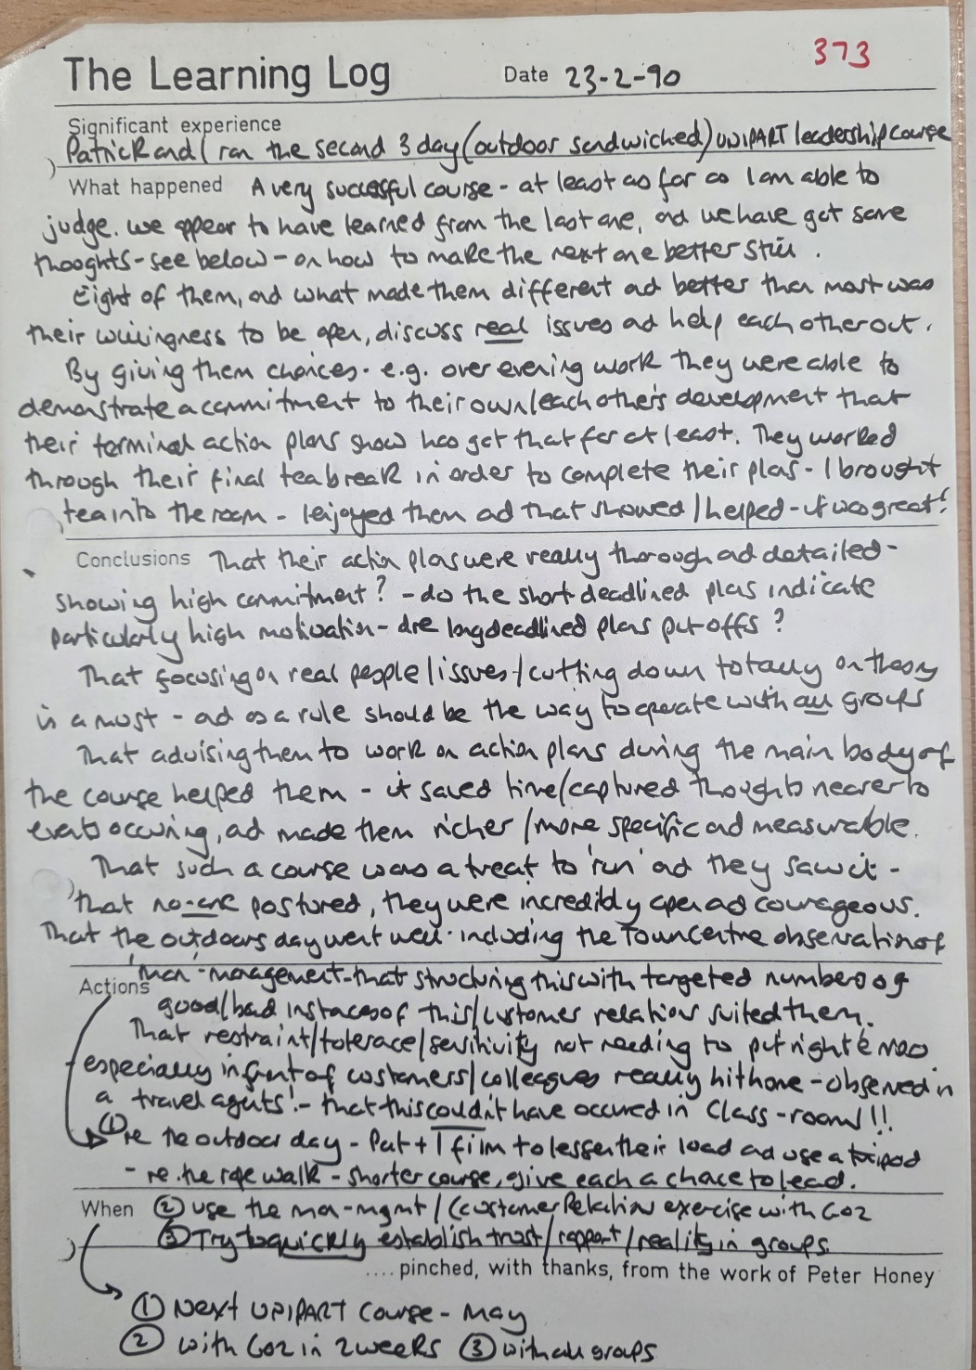 373
The Learning Log Date 23-2-90
Significant experience
Patrick and I ran the second 3 day (outdoor sandwiched) UNIPART leadership course
What happened A very successful course - at least as far as I am able to
judge. We appear to have learned from the last one, and we have got some
thoughts - see below - on how to make the next one better still.
Eight of them, and what made them different and better than most was
their willingness to be open, discuss real issues and help each other out.
By giving them choices - e.g. over evening work they were able to
demonstrate a commitment to their own/each other's development that
their terminal action plans show has got that far at least. They worked
through their final tea break in order to complete their plans - I brought
tea into the room - I enjoyed them and that showed/helped - it was great!
Conclusions That their action plans were really thorough and detailed -
showing high commitment? - do the short-deadlined plans indicate
particularly high motivation - are long deadlined plans put offs?
That focusing on real people/issues/cutting down totally on theory
is a must - and as a rule should be the way to operate with all groups
That advising them to work on action plans during the main body of
the course helped them - it saved time/captured thoughts nearer to
events occuring, and made them richer/more specific and measurable.
That such a course was a treat to 'run' and they saw it -
that no-one postured, they were incredibly open and courageous.
That the outdoors day went well - including the Town centre observation of
'man'-management - that structuring this with targeted numbers of
Actions
good/bad instances of this/customer relations suited them.
That restraint/tolerance/sensitivity not needing to put right
especially in front of customers/colleagues really hit home - observed in
a 'travel agents'! - that this couldn't have occured in Class-room!!
① re the outdoor day - Put + 1 film to lessen their load and use a tripod
- re. the rope walk - shorter course, give each a chance to lead.
When ② use the man-mgmt/Customer Relation exercise with Co2
③ Try to quickly establish trust/rapport/reality in groups.
.... pinched, with thanks, from the work of Peter Honey
① Next UNIPART Course - May
② with Co2 in 2 weeks ③ with all groups